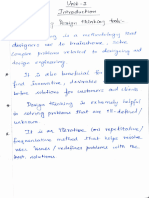 Unit-2
Introduction
Design thinking tool:-
is a methodology that
designers use to brainstorm, solve
complex problems related to designing and
design engineering.
* It is also beneficial for
find innovative, desirable
before solutions for customers and clients
* Design thinking is extremely helpful
in solving problems that are ill-defined/
unknown
* It is an Iterative (or) repetitive/
method that helps resolve
issues/redefines problems with the
best solutions